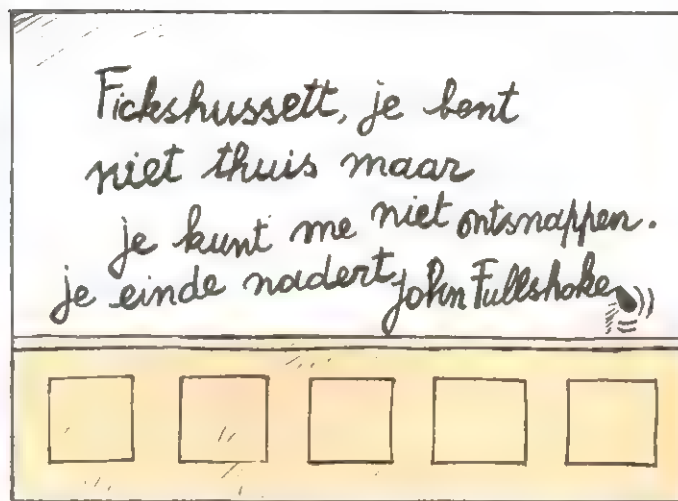 Fickshussett, je bent
niet thuis maar
je kunt me niet ontsnappen.
je einde nadert, John Fullshoke